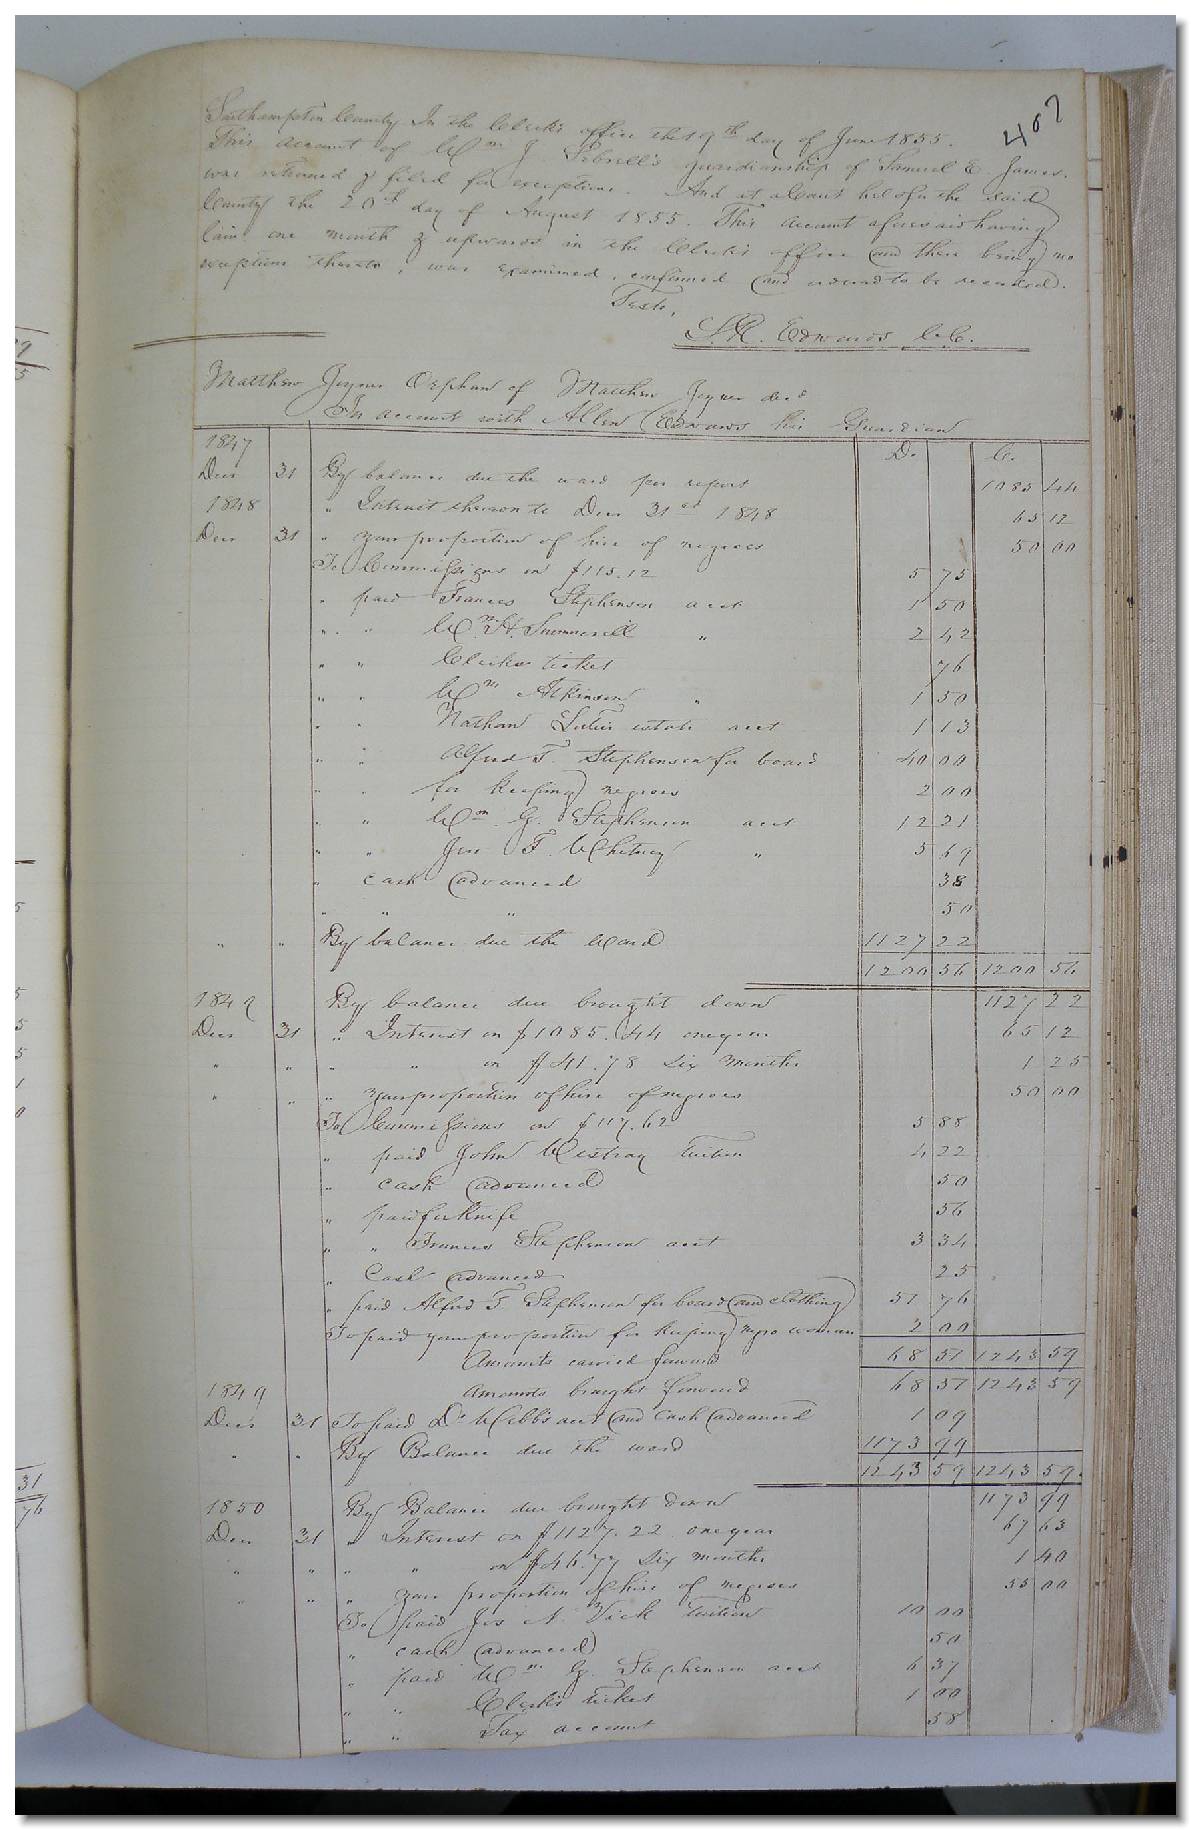 407
Southampton County In the Clerk's office the 19th day of June 1855.
This account of Wm J. Sebrell's guardianship of Samuel E James.
was returned & filed for exceptions. And at a Court held for the said
County the 20th day of August 1855. This account aforesaid having
lain one month & upwards in the Clerk's office and there being no
exceptions thereto, was examined, confirmed and ordered to be recorded.
Teste,
L.R. Edwards C.C.
Matthew Joyner Orphan of Matthew Joyner decd
In account with Allen Edwards his Guardian
1847 D. C.
Decr 31 By balance due the ward per report 1085 44
1848 " Interest thereon to Decr 31st 1848 65 12
Decr 31 " your proportion of hire of negroes 50 00
To Commissions on $115.12 5 75
" paid Frances Stephenson acct 1 50
" " Wm H. Summerell " 2 42
" " Clerks ticket 76
" " Wm Atkinson " 1 50
" " Nathan estate acct 1 13
" " Alfred T. Stephenson for board 40 00
" " for keeping negroes 2 00
" " Wm G. Stephenson acct 12 21
" " Jas T. Whitney " 5 69
" cash advanced 38
" " " 50
" " By balance due the Ward 1127 22
1200 56 1200 56
1849 By balance due brought down 1127 22
Decr 31 " Interest on $1085.44 one year 65 12
" " " " on $41.78 six months 1 25
" " " your proportion of hire of negroes 50 00
To Commissions on $117.62 5 88
" paid John Westray tuition 4 22
" cash advanced 50
" paid for Knife 56
" " Frances Stephenson acct 3 34
" Cash advanced 25
" paid Alfred T. Stephenson for board and clothing 51 76
To paid your proportion for keeping negro woman 2 00
Amounts carried forward 68 51 1243 59
1849 Amounts brought forward 68 51 1243 59
Decr 31 To paid Dr Webb's acct and cash advanced 1 09
" " By Balance due the ward 1173 99
1243 59 1243 59.
1850 By Balance due brought down 1173 99
Decr 31 " Interest on $1127.22 one year 67 63
" " " " on $46.77 six months 1 40
" " " your proportion of hire of negroes 55 00
To paid Jos N. Vick tuition 10 00
" cash advanced 50
" paid Wm G. Stephenson acct 6 37
" " Clerk's ticket 1 00
" " Tax account 58